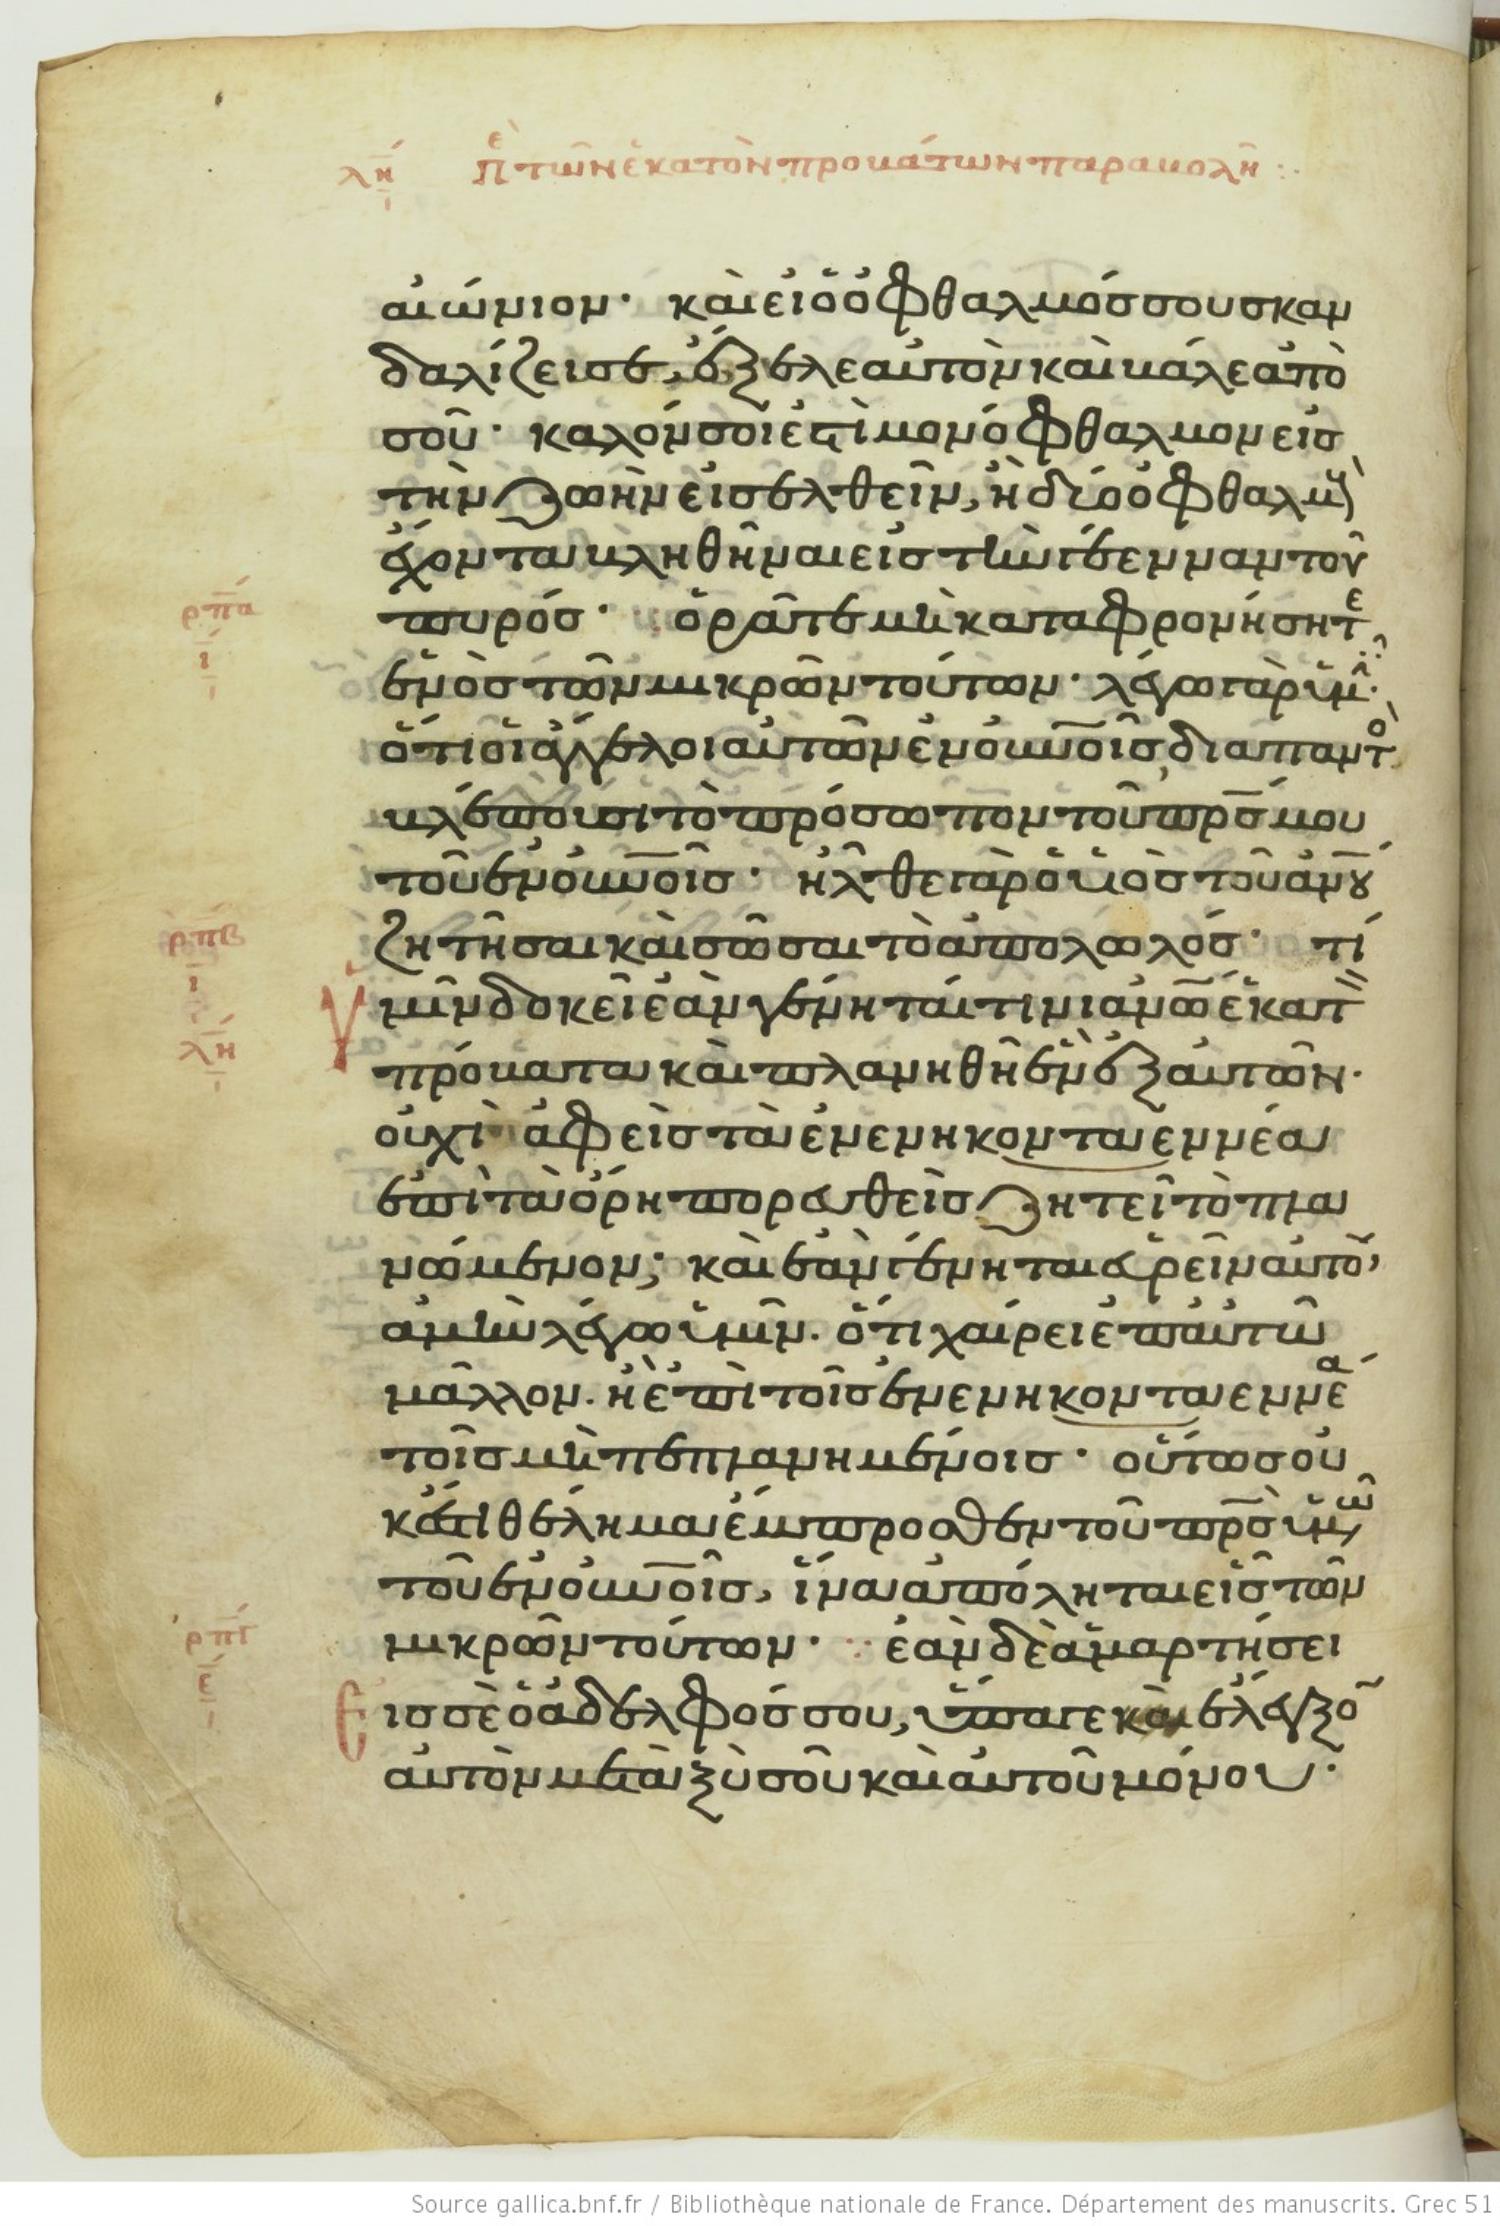 λη Περὶ τῶν ἑκατὸν προβάτων παραβολῆ :·
αἰώνιον· καὶ εἰ ὁ ὀφθαλμός σου σκαν
δαλίζει σε, ἔξελε αὐτὸν καὶ βάλε ἀπὸ
σοῦ· καλόν σοι ἐστὶ μονόφθαλμον εἰς
τὴν ζωὴν εἰσελθεῖν, ἢ δύο ὀφθαλμοὺς
ἔχοντα βληθῆναι εἰς τὴν γέενναν τοῦ
ρπα ι πυρός· ὁρᾶτε μὴ καταφρονήσητε
ἑνὸς τῶν μικρῶν τούτων· λέγω γὰρ ὑμῖν·
ὅτι οἱ ἄγγελοι αὐτῶν ἐν οὐνοῖς διαπαντὸ
βλέπουσι τὸ πρόσωπον τοῦ πρς μου
τοῦ ἐν οὐνοῖς· ἦλθε γὰρ ὁ υἱὸς τοῦ ἀνου
ρπβ ι ζητῆσαι καὶ σῶσαι τὸ ἀπολωλός· τί
λη ὑμῖν δοκεῖ ἐὰν γένηταί τινι ἀνω ἑκατὸν
πρόβατα καὶ πλανηθῆ ἓν ἐξ αὐτῶν·
οὐχὶ ἀφεὶς τὰ ἐνενηκονταεννέα
ἐπὶ τὰ ὄρη πορευθεὶς ζητεῖ τὸ πλα
νώμενον; καὶ ἐὰν γένηται εὑρεῖν αὐτὸ,
ἀμὴν λέγω ὑμῖν· ὅτι χαίρει ἐπ αὐτῶ
μᾶλλον· ἢ ἐπὶ τοῖς ἐνενηκονταεννέα
τοῖς μὴ πεπλανημένοις· οὕτως οὐ
κἔστι θέλημα ἔμπροσθεν τοῦ πρς ὑμῶν
τοῦ ἐν οὐνοῖς, ἵνα ἀπόληται εἷς τῶν
ρπγ ε μικρῶν τούτων· ἐὰν δὲ ἁμαρτήσει
Ε εἰς σὲ ὁ ἀδελφός σου, ὕπαγε καὶ ἔλεγξον
αὐτὸν μεταξὺ σοῦ καὶ αὐτοῦ μόνου·
Source gallica.bnf.fr / Bibliothèque nationale de France. Département des manuscrits. Grec 51